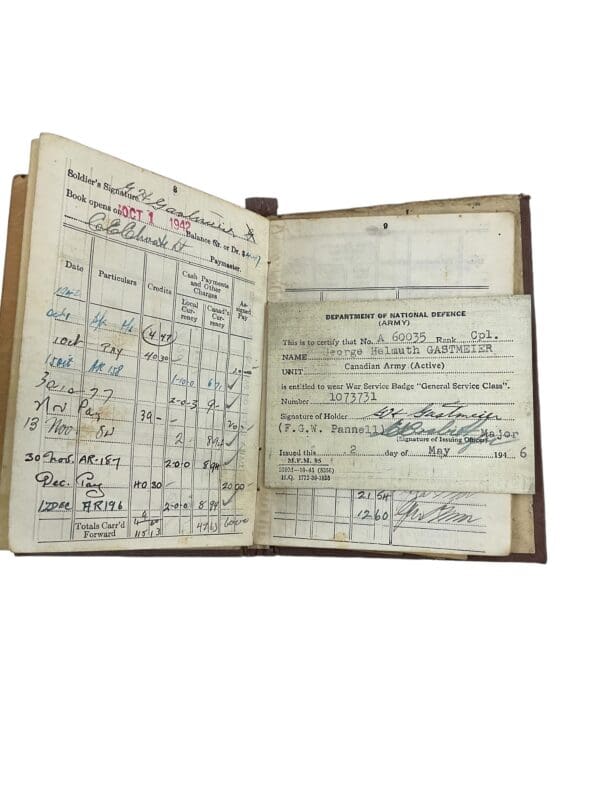 8
Soldier's Signature G H Gastmeier
Book opens on OCT 1 1942 Balance Cr. or Dr. $4.47
Paymaster.
Date Particulars Credits Cash Payments and Other Charges As-signed Pay
Local Cur-rency Canad'n Cur-rency
Oct 1 4 47
1 Oct PAY 40.30
15 Oct AR 158 1-10-0 6 71 ✓
2-0-3 9 - ✓
Nov Pay 39 -
13 Nov 2
30 Nov. AR-187 2-0-0 8 94 ✓
Dec. Pay 40 30 20 00
12 DEC AR196 2-0-0 8 94 ✓
Totals Carr'd Forward
9
DEPARTMENT OF NATIONAL DEFENCE
(ARMY)
This is to certify that No. A 60035 Rank Cpl.
NAME George Helmuth GASTMEIER
UNIT Canadian Army (Active)
is entitled to wear War Service Badge "General Service Class".
Number 1073731
Signature of Holder G H Gastmeier
(F.G.W. Pannell) Major
(Signature of Issuing Officer)
Issued this 2 day of May 194 6
M.F.M. 95
H.Q. 1772-39-1855
21 54
12 60